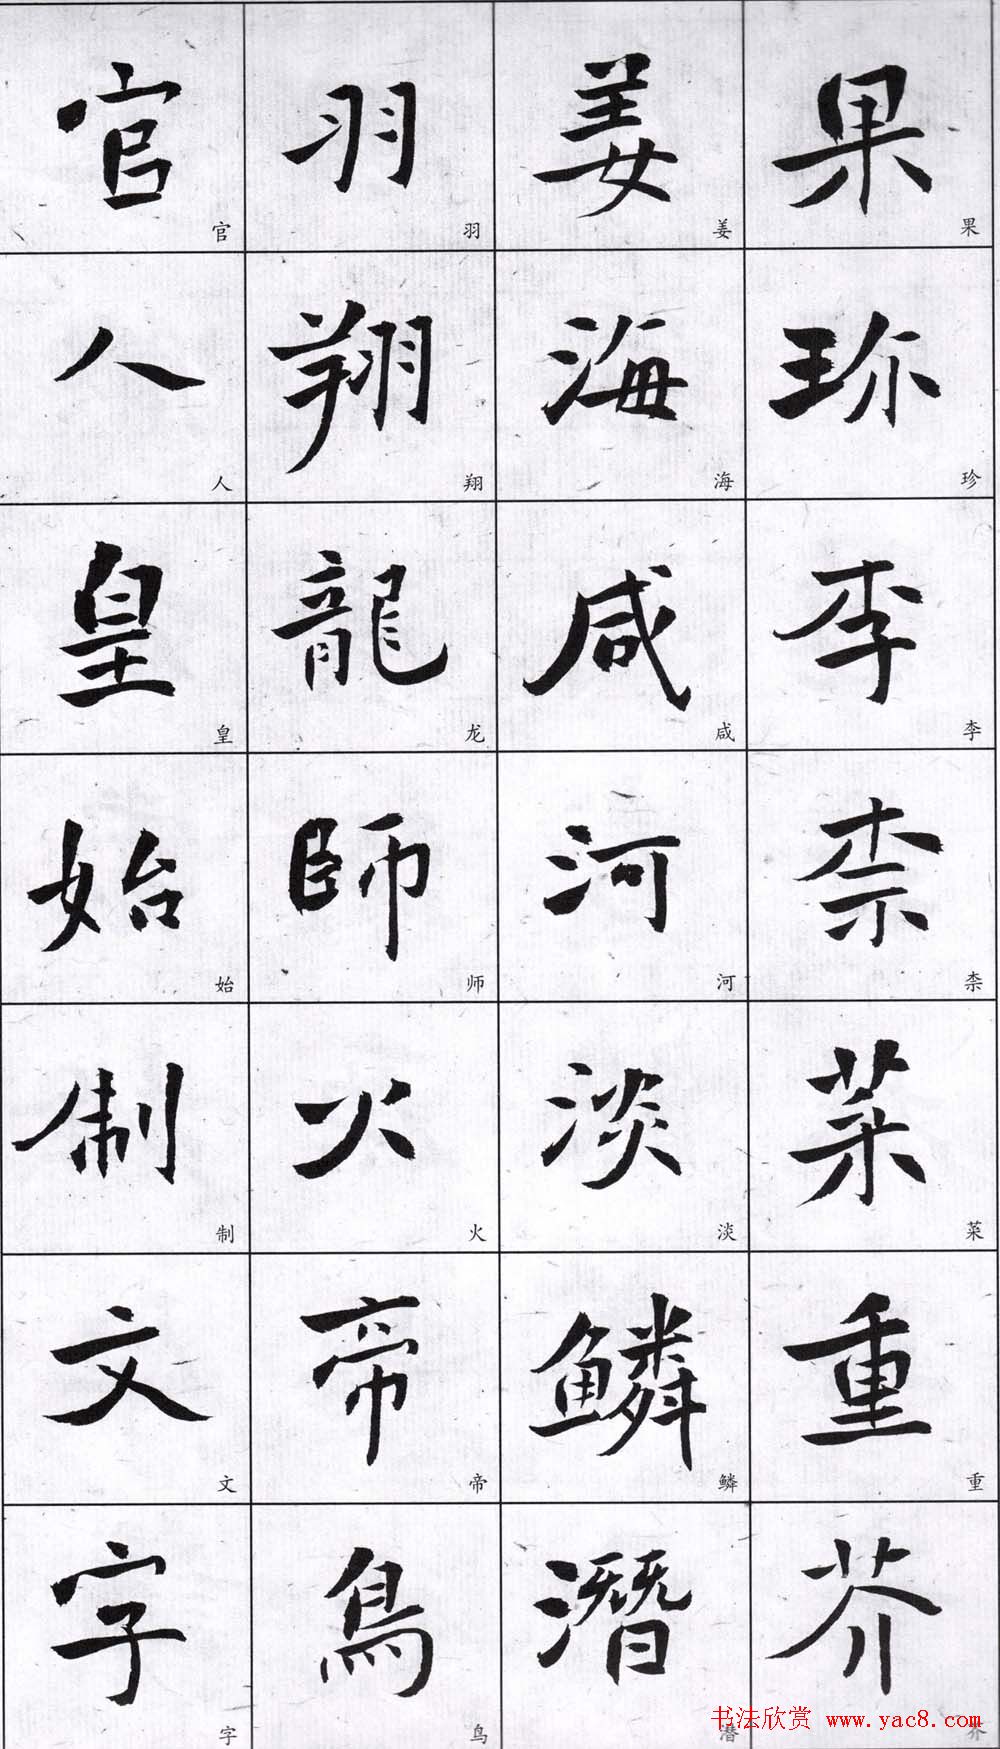 果珎李柰菜重芥
果珍李柰菜重芥
姜海咸河淡鱗潛
姜海咸河淡鳞潜
羽翔龍師火帝鳥
羽翔龙师火帝鸟
官人皇始制文字
官人皇始制文字
书法欣赏 www.yac8.com